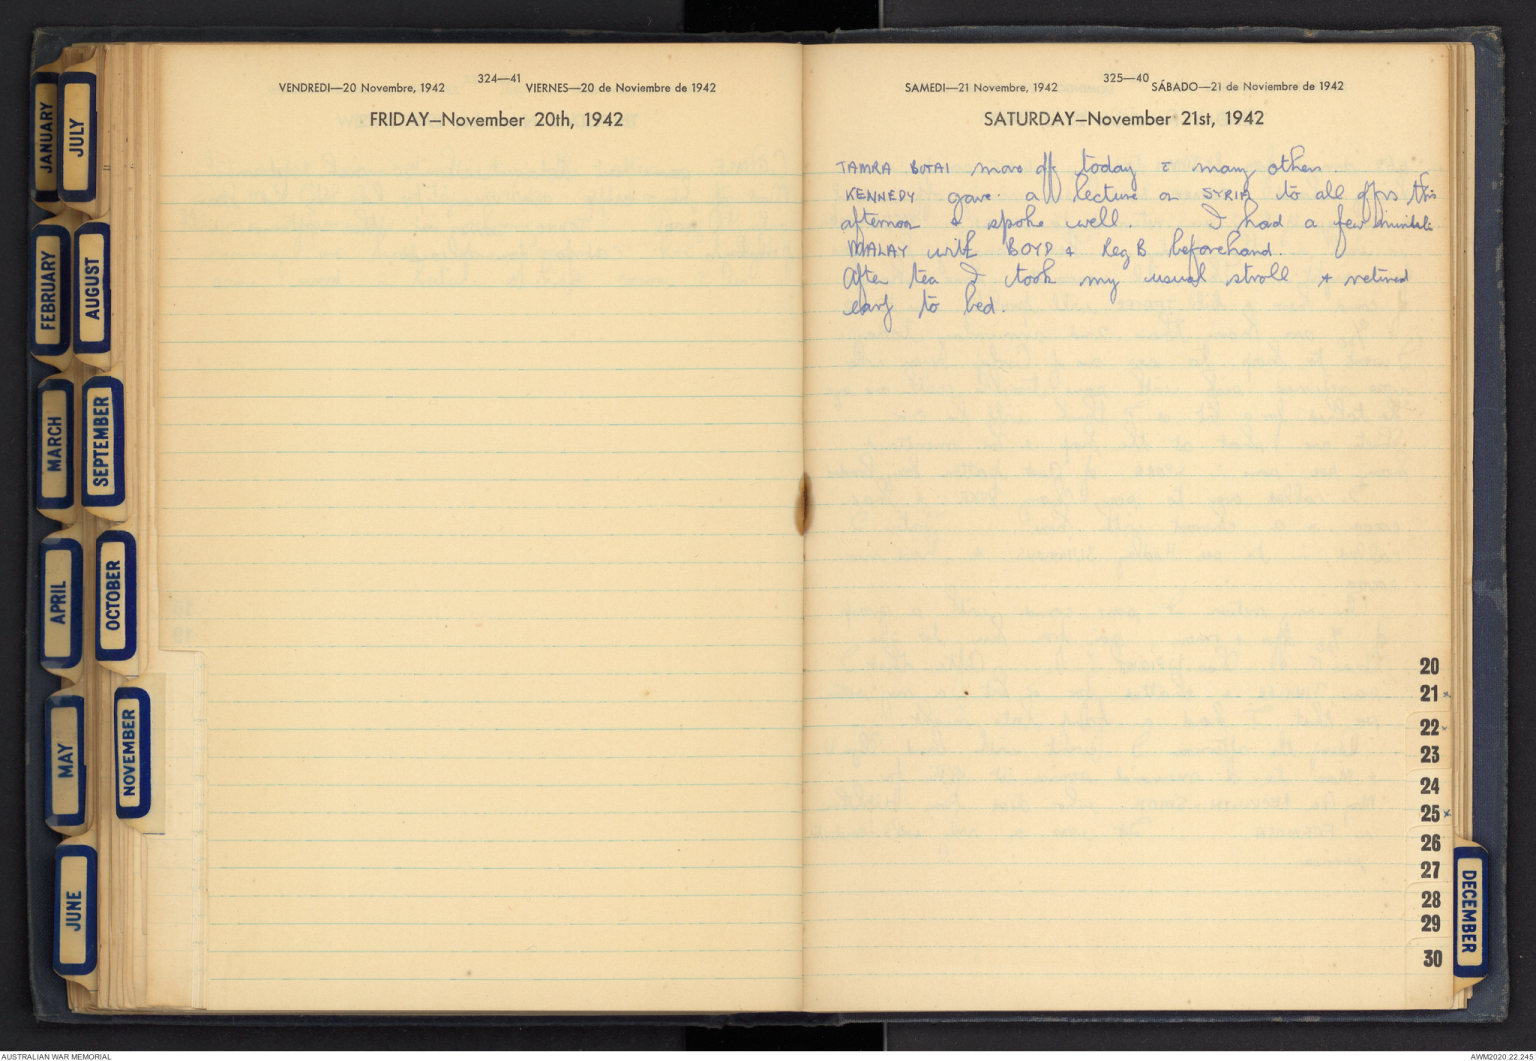 JANUARY
JULY
FEBRUARY
AUGUST
MARCH
SEPTEMBER
APRIL
OCTOBER
MAY
NOVEMBER
JUNE
324—41
VENDREDI—20 Novembre, 1942 VIERNES—20 de Noviembre de 1942
FRIDAY—November 20th, 1942
325—40
SAMEDI—21 Novembre, 1942 SÁBADO—21 de Noviembre de 1942
SATURDAY—November 21st, 1942
TAMRA move off today & many others.
KENNEDY gave a lecture on SYRIA to all offrs this
afternoon & spoke well. I had a few minutes
MALAY with BOYD & Reg B beforehand.
After tea I took my usual stroll & retired
early to bed.
20
21 x
22
23
24
25 x
26
27
28
29
30
DECEMBER
AUSTRALIAN WAR MEMORIAL
AWM2020.22.245